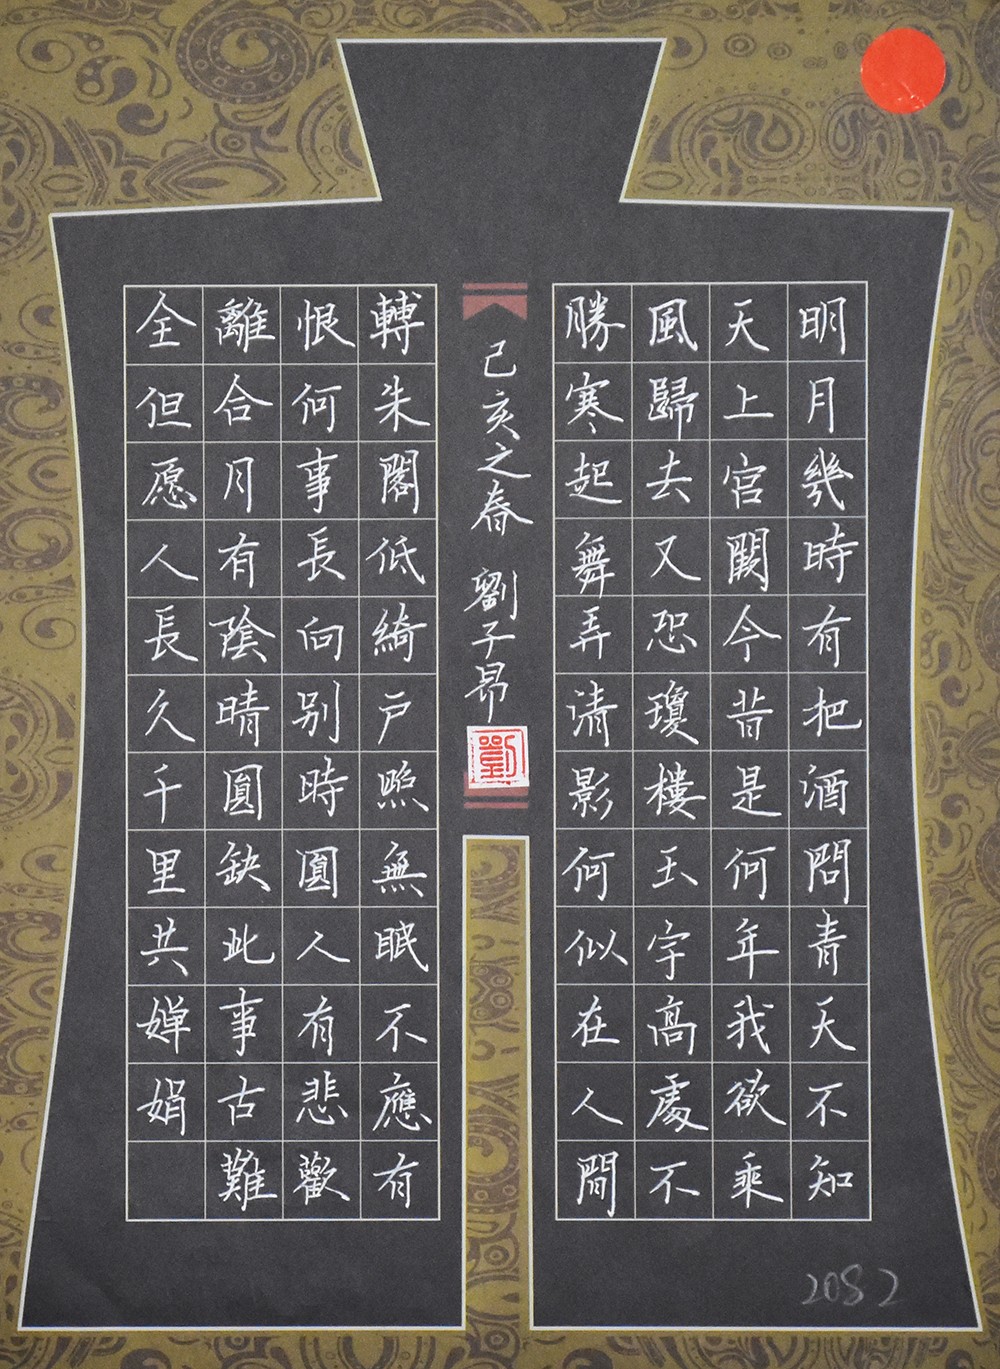 明月幾時有把酒問青天不知
天上宫闕今昔是何年我欲乘
風歸去又恐瓊樓玉宇高處不
勝寒起舞弄清影何似在人間
己亥之春 劉子昂
劉
轉朱閣低綺戶照無眠不應有
恨何事長向别時圓人有悲歡
離合月有陰晴圓缺此事古難
全但愿人長久千里共嬋娟
2082